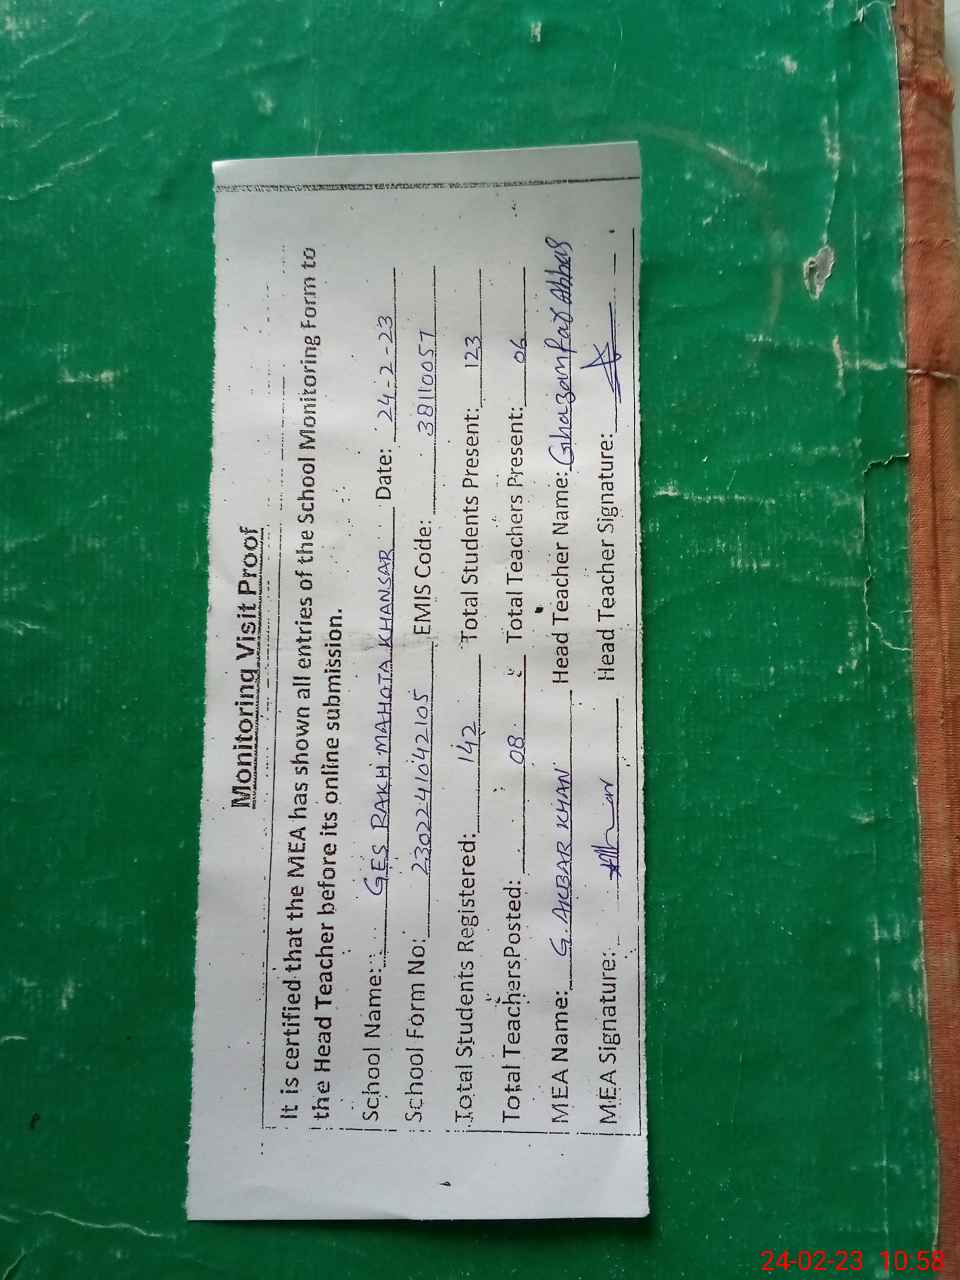 Monitoring Visit Proof
It is certified that the MEA has shown all entries of the School Monitoring Form to
the Head Teacher before its online submission.
School Name: GES RAKH MAHOTA KHANSAR Date: 24-2-23
School Form No: 2302241042105 EMIS Code: 38110057
Total Students Registered: 142 Total Students Present: 123
Total TeachersPosted: 08 Total Teachers Present: 06
MEA Name: G. AKBAR KHAN Head Teacher Name: Ghazanfar Abbas
MEA Signature: Head Teacher Signature:
24-02-23 10:58